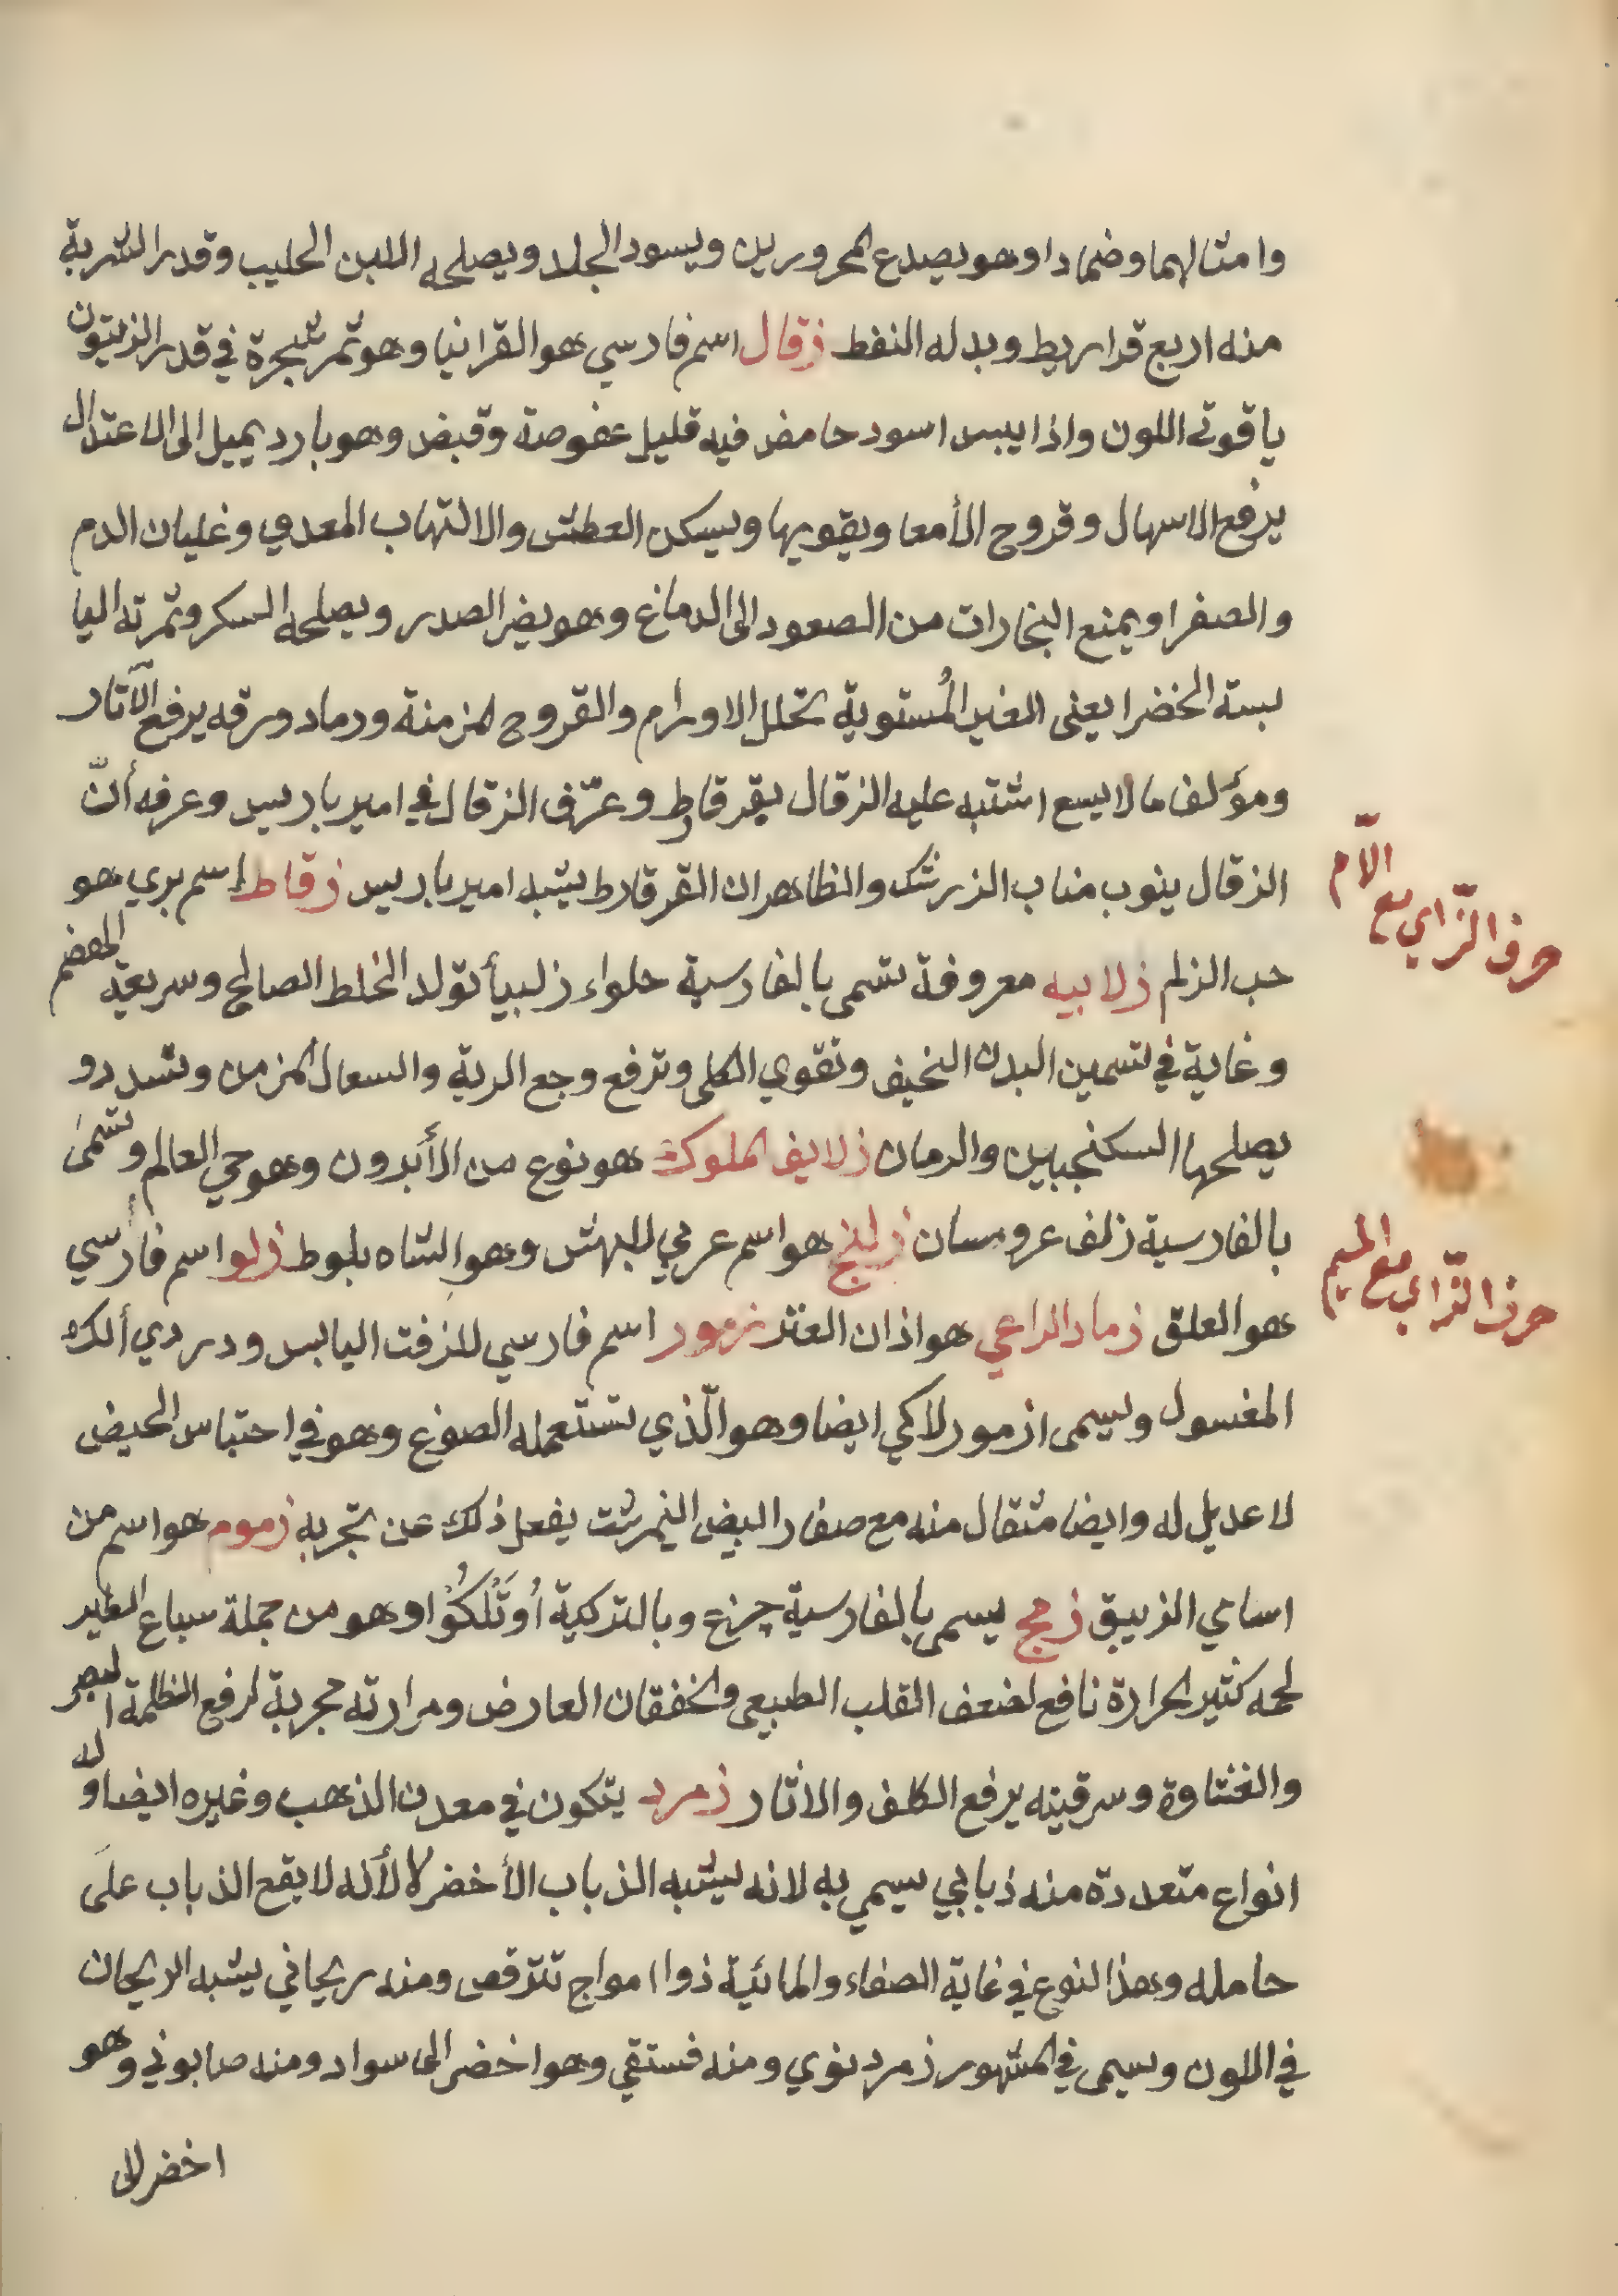 وامثالهما وضمادا وهو يصدع المحرورين ويسود الجلد ويصلحه اللبن الحليب وقدر الشربة
منه اربع قراريط وبدله النفط زقال اسم فارسي هو القرانيا وهو ثمر شجرة في قدر الزيتون
ياقوتى اللون واذا يبس اسود حامض فيه قليل عفوصة وقبض وهو بارد يميل الى الاعتدال
يرفع الاسهال وقروح الأمعا ويقويها ويسكن العطش والالتهاب المعدي وغليان الدم
والصفرا ويمنع البخارات من الصعود الى الدماغ وهو يضر الصدر ويصلحه السكر وثمرته اليا
بسة الخضرا يعنى الغير المُستوية تحلل الاورام والقروح المزمنة ورماد ورقه يرفع الآثار
ومؤلف ما لا يسع اشتبه عليه الزقال بقرقاط وعرّف الزقال في امير باريس وعرفه أنّ
الزقال ينوب مناب الزرشك والظاهر ان القرقاط يشبه امير باريس زقاط اسم بري هو
حب الزلم زلابيه معروفة تسمى بالفارسية حلواء زلبيأ تولد الخلط الصالح وسريعة الهضم
وغاية في تسمين البدن النحيف وتقوي الكلى وترفع وجع الرية والسعال المزمن وتسدد و
يصلحها السكنجبين والرمان زلايف الملوك هو نوع من الأبرون وهو حي العالم وتسمىَ
بالفارسية زلف عروسان زلنج هو اسم عربي للبهش وهو الشاه بلوط زلو اسم فارسي
هو العلق زماد الراعي هو اذان العنز زمور اسم فارسي للزفت اليابس ودردي ألك
المغسول ويسمى ازمور لاكي ايضا وهو الّذي تستعمله الصوغ وهو في احتباس الحيض
لا عديل له وايضا مثقال منه مع صفار البيض النيمرشت يفعل ذلك عن تجربه زموم هو اسم من
اسامي الزيبق زمج يسمى بالفارسية جرغ وبالتركية اُوتَلكُوْا وهو من جملة سباع الطير
لحمه كثير الحرارة نافع لضعف القلب الطبيعى والخفقان العارض ومرارته مجربة لرفع الظلمة البصر
والغشاوة وسرقينه يرفع الكلف والاثار زمرد يتكون في معدن الذهب وغيره ايضا وله
انواع متعددة منه ذبابي سمي به لانه يشبه الذباب الأخضر لا لأنه لا يقع الذباب علىَ
حامله وهذا النوع في غاية الصفاء والمائية ذو امواج تترقص ومنه ريحاني يشبه الريحان
في اللون ويسمى في المشهور زمرد نوي ومنه فستقي وهو اخضر الى سواد ومنه صابوني وهو
اخضر الى
حرف الزّاي مع الاّم
حرف الزّاي مع الميم